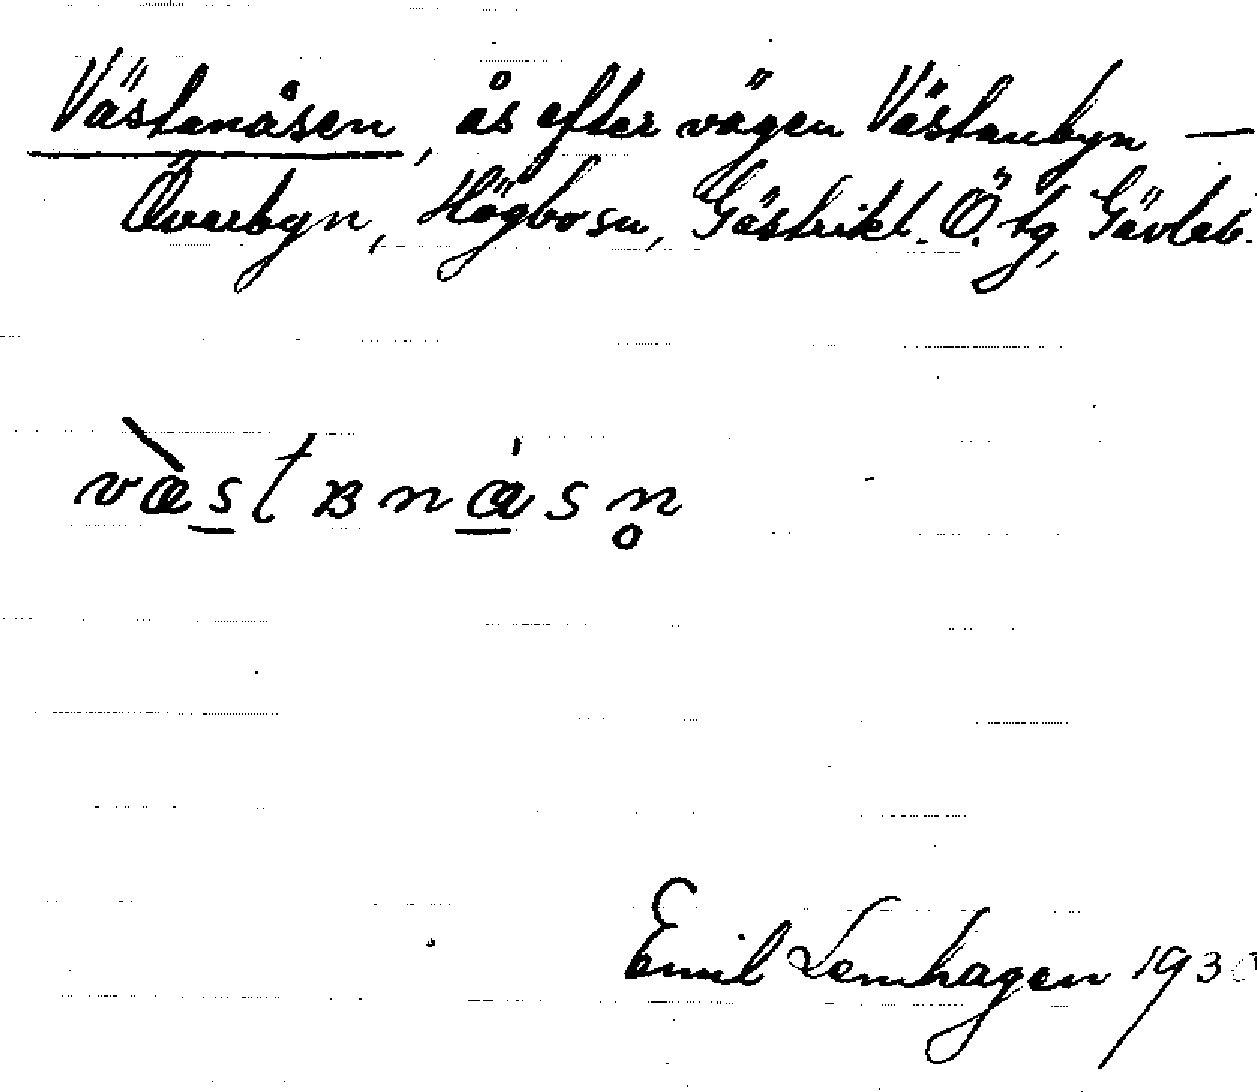 Västanåsen, ås efter vägen Västanbyn —
Överbyn, Högbo sn, Gästrikl. Ö. tg, Gävleb.
væstʙnåsn̥
Emil Lenhagen 1930